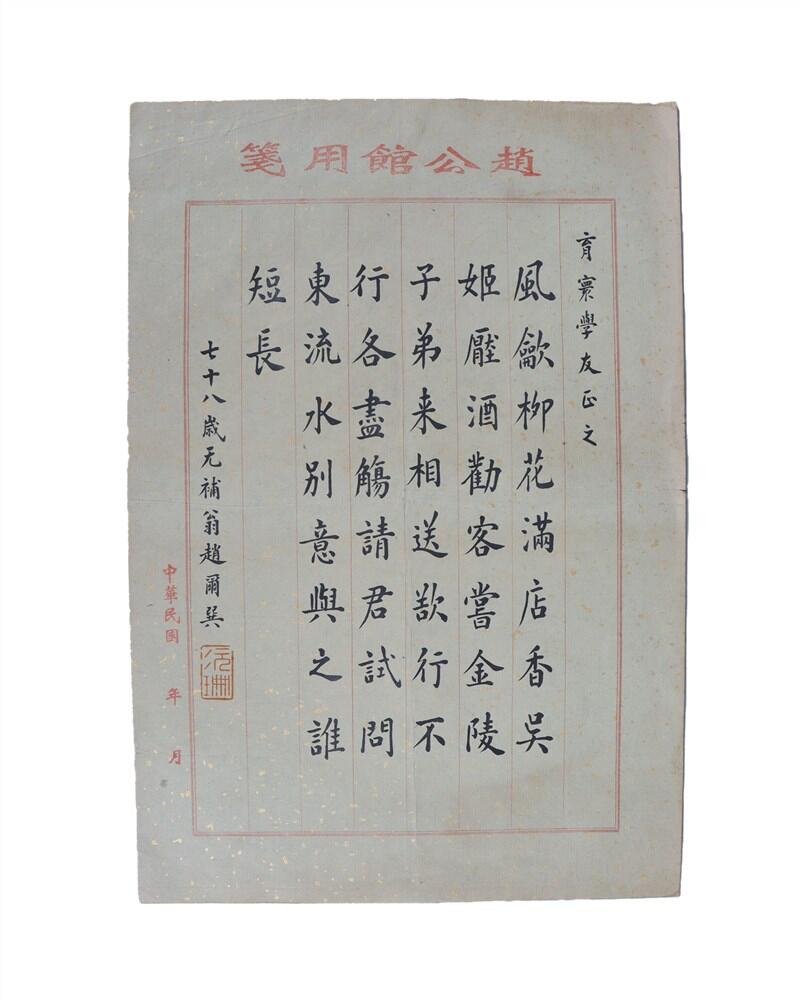 趙公館用箋
育寰學友正之
風歙柳花滿店香吳
姬壓酒勸客嘗金陵
子弟来相送欲行不
行各盡觴請君試問
東流水别意與之誰
短長
七十八歲无補翁趙爾巽
中華民國 年 月